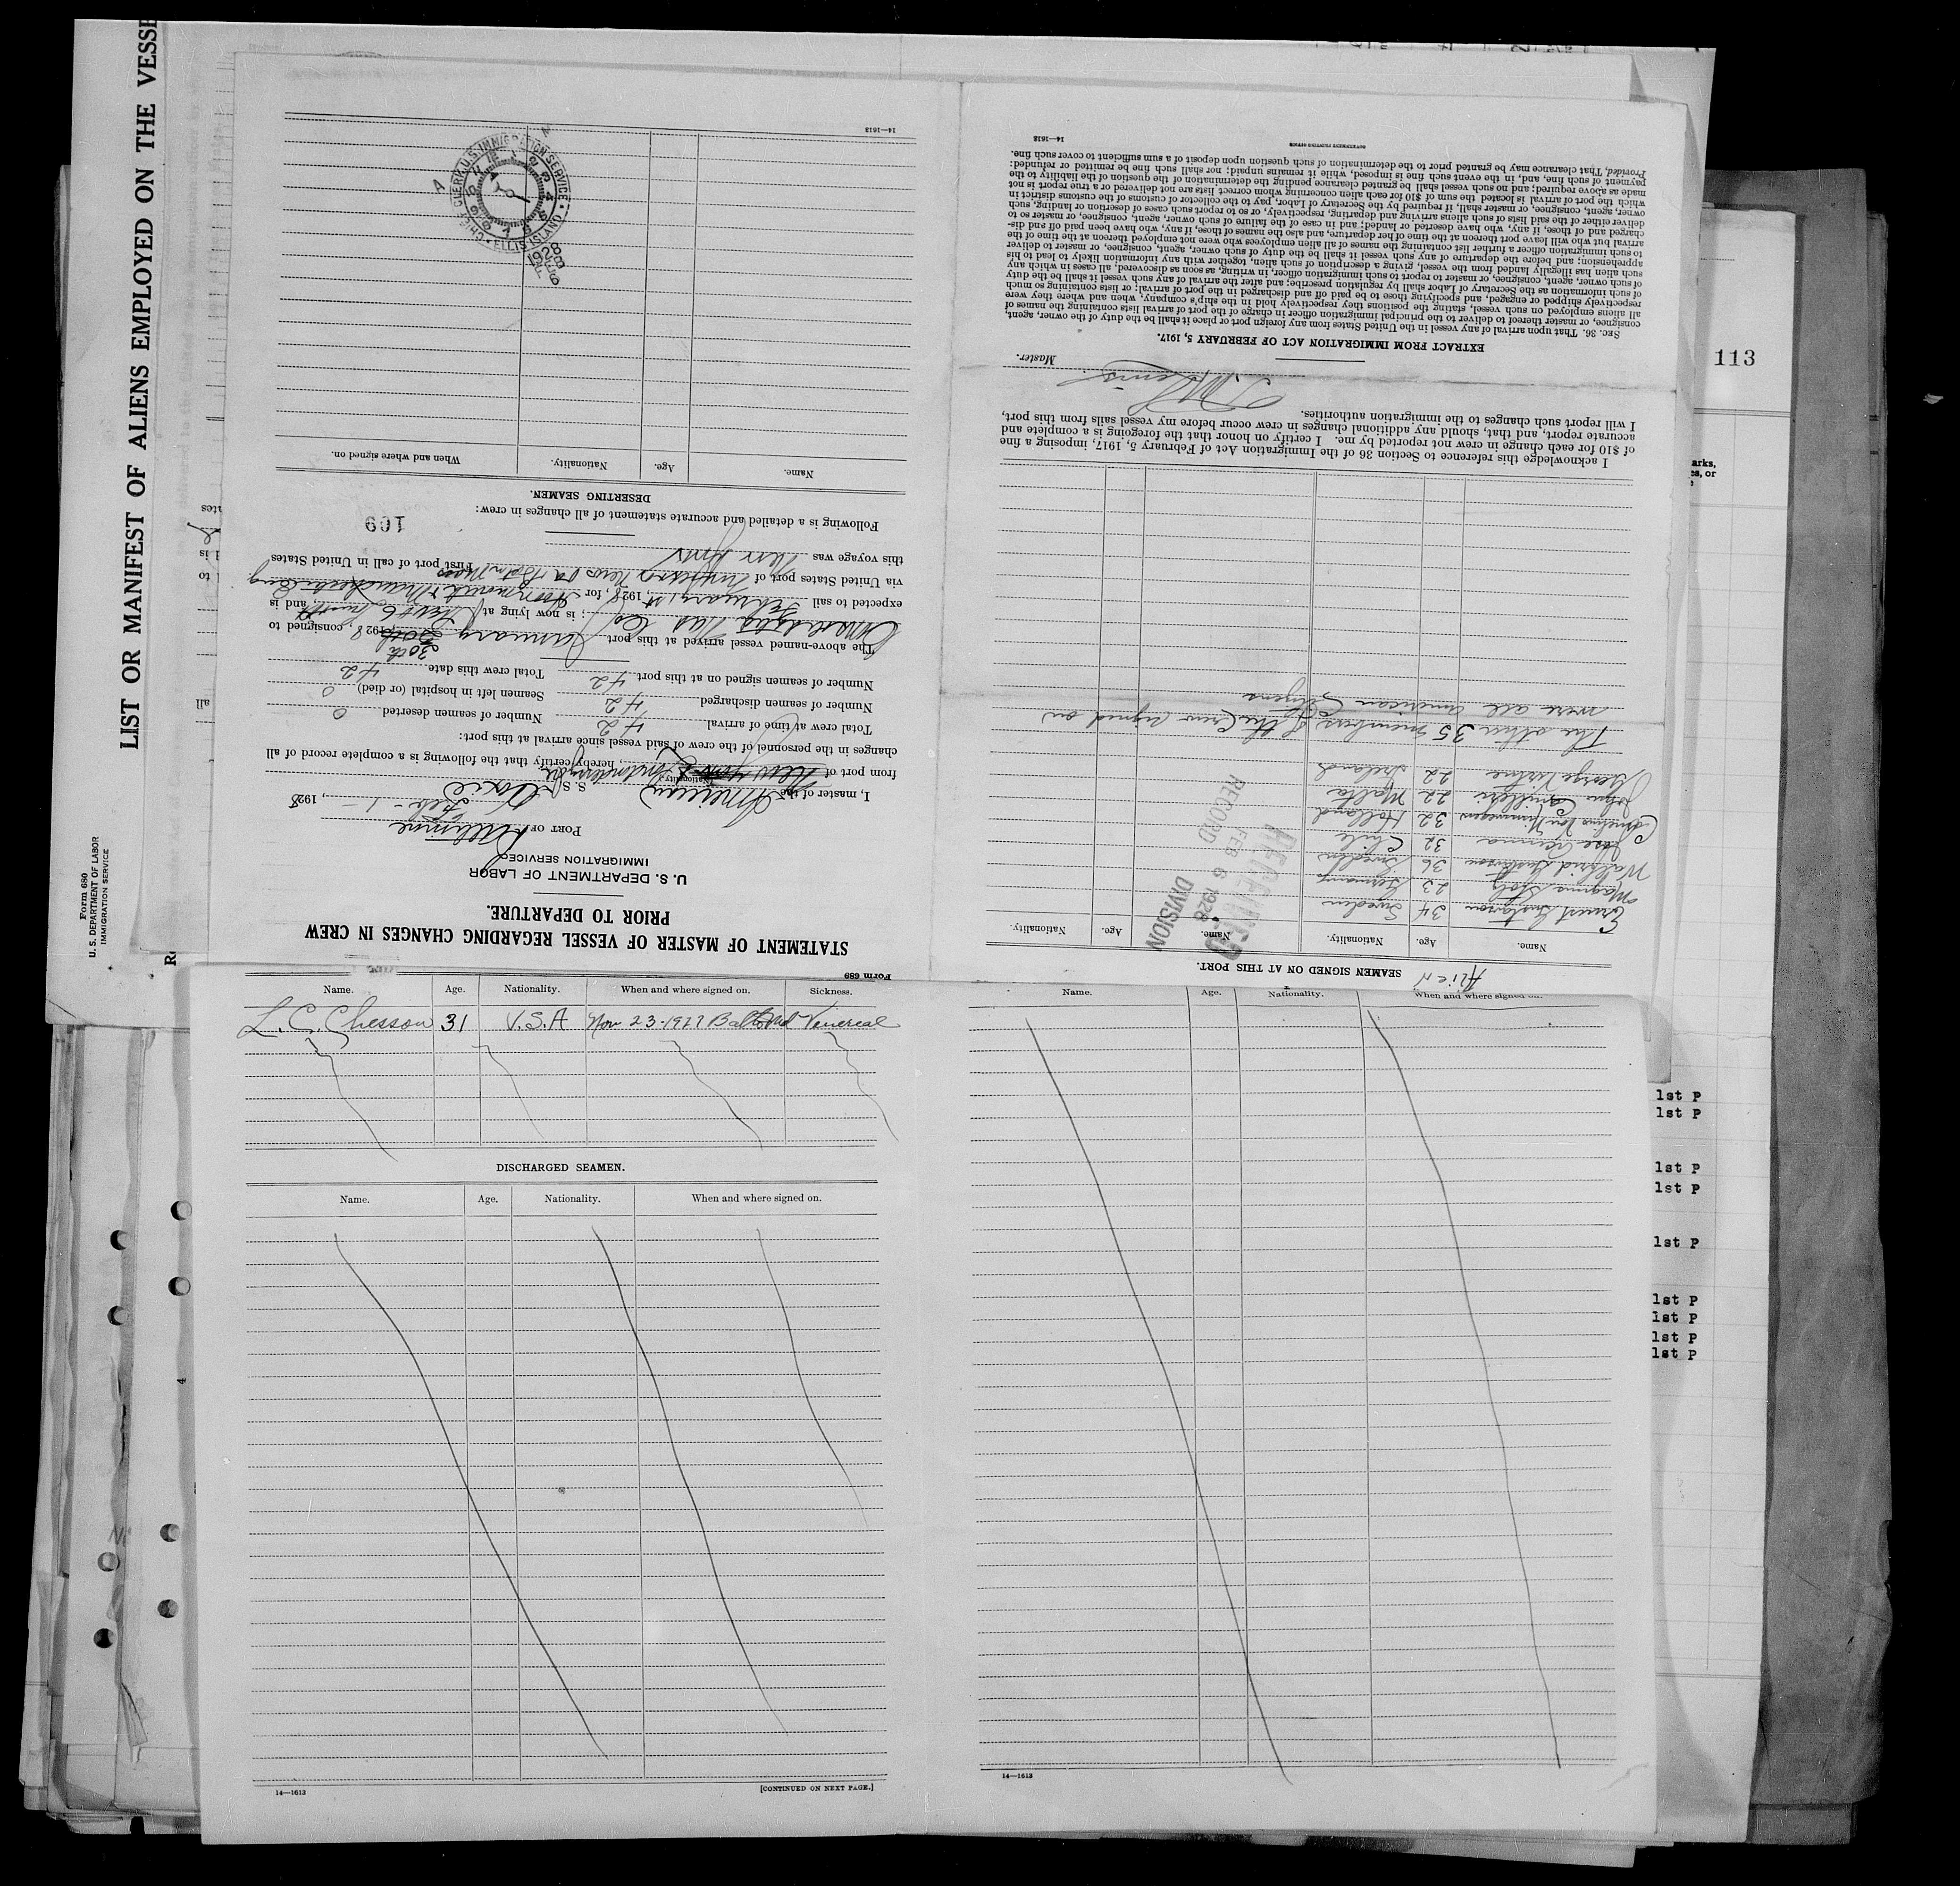 LIST OR MANIFEST OF ALIENS EMPLOYED ON THE VESSE
Form 680
U. S. DEPARTMENT OF LABOR
IMMIGRATION SERVICE
113
Form 689
STATEMENT OF MASTER OF VESSEL REGARDING CHANGES IN CREW
PRIOR TO DEPARTURE.
U. S. DEPARTMENT OF LABOR
IMMIGRATION SERVICE
PORT OF Baltimore
Feb - 1 -, 1928
I, master of the American S. S.
(Nationality)
from port of New York & Londonderry, hereby certify that the following is a complete record of all
changes in the personnel of the crew of said vessel since arrival at this port:
Total crew at time of arrival 42 Number of seamen deserted 0
Number of seamen discharged 42 Seamen left in hospital (or died) 0
Number of seamen signed on at this port 42 Total crew this date 42
The above-named vessel arrived at this port January 30th, 1928, consigned to
; is now lying at Pier 6, and is
expected to sail February 1st, 1928, for Avonmouth & Manchester Eng
via United States port of Newport News Va & Boston Mass First port of call in United States
this voyage was New York
Following is a detailed and accurate statement of all changes in crew:
109
DESERTING SEAMEN.
Name. Age. Nationality. When and where signed on.
CHIEF CLERK U.S. IMMIGRATION SERVICE • ELLIS ISLAND
1928 FEB 6
14—1613
Alien
SEAMEN SIGNED ON AT THIS PORT.
Name. Age. Nationality. Name. Age. Nationality.
Ernest Gustafson 34 Sweden
Magnus Stolz 23 Germany
Walfrid Gustafson 36 Sweden
Jose 32 Chile
Cornelius Van Nimwegen 32 Holland
John Camilleri 22 Malta
George Virtue 22 Ireland
The other 35 members of the Crew signed on
were all american Citizens
RECEIVED
FEB 6 1928
RECORD DIVISION
I acknowledge this reference to Section 36 of the Immigration Act of February 5, 1917, imposing a fine
of $10 for each change in crew not reported by me. I certify on honor that the foregoing is a complete and
accurate report, and that, should any additional changes in crew occur before my vessel sails from this port,
I will report such changes to the immigration authorities.
Master.
EXTRACT FROM IMMIGRATION ACT OF FEBRUARY 5, 1917.
SEC. 36. That upon arrival of any vessel in the United States from any foreign port or place it shall be the duty of the owner, agent,
consignee, or master thereof to deliver to the principal immigration officer in charge of the port of arrival lists containing the names of
all aliens employed on such vessel, stating the positions they respectively hold in the ship's company, when and where they were
respectively shipped or engaged, and specifying those to be paid off and discharged in the port of arrival; or lists containing so much
of such information as the Secretary of Labor shall by regulation prescribe; and after the arrival of any such vessel it shall be the duty
of such owner, agent, consignee, or master to report to such immigration officer, in writing, as soon as discovered, all cases in which any
such alien has illegally landed from the vessel, giving a description of such alien, together with any information likely to lead to his
apprehension; and before the departure of any such vessel it shall be the duty of such owner, agent, consignee, or master to deliver
to such immigration officer a further list containing the names of all alien employees who were not employed thereon at the time of the
arrival but who will leave port thereon at the time of her departure, and also the names of those, if any, who have been paid off and dis-
charged and of those, if any, who have deserted or landed; and in case of the failure of such owner, agent, consignee, or master so to
deliver either of the said lists of such aliens arriving and departing, respectively, or so to report such cases of desertion or landing, such
owner, agent, consignee, or master shall, if required by the Secretary of Labor, pay to the collector of customs of the customs district in
which the port of arrival is located the sum of $10 for each alien concerning whom correct lists are not delivered or a true report is not
made as above required; and no such vessel shall be granted clearance pending the determination of the question of the liability to the
payment of such fine, and, in the event such fine is imposed, while it remains unpaid; nor shall such fine be remitted or refunded:
Provided, That clearance may be granted prior to the determination of such question upon deposit of a sum sufficient to cover such fine.
14—1613
GOVERNMENT PRINTING OFFICE
Name. Age. Nationality. When and where signed on. Sickness.
L. C. Chesson 31 U.S.A Nov 23-1927 Balto Md Venereal
DISCHARGED SEAMEN.
Name. Age. Nationality. When and where signed on.
14—1613
[CONTINUED ON NEXT PAGE.]
Name. Age. Nationality. When and where signed on.
14—1613
1st P
1st P
1st P
1st P
1st P
1st P
1st P
1st P
1st P